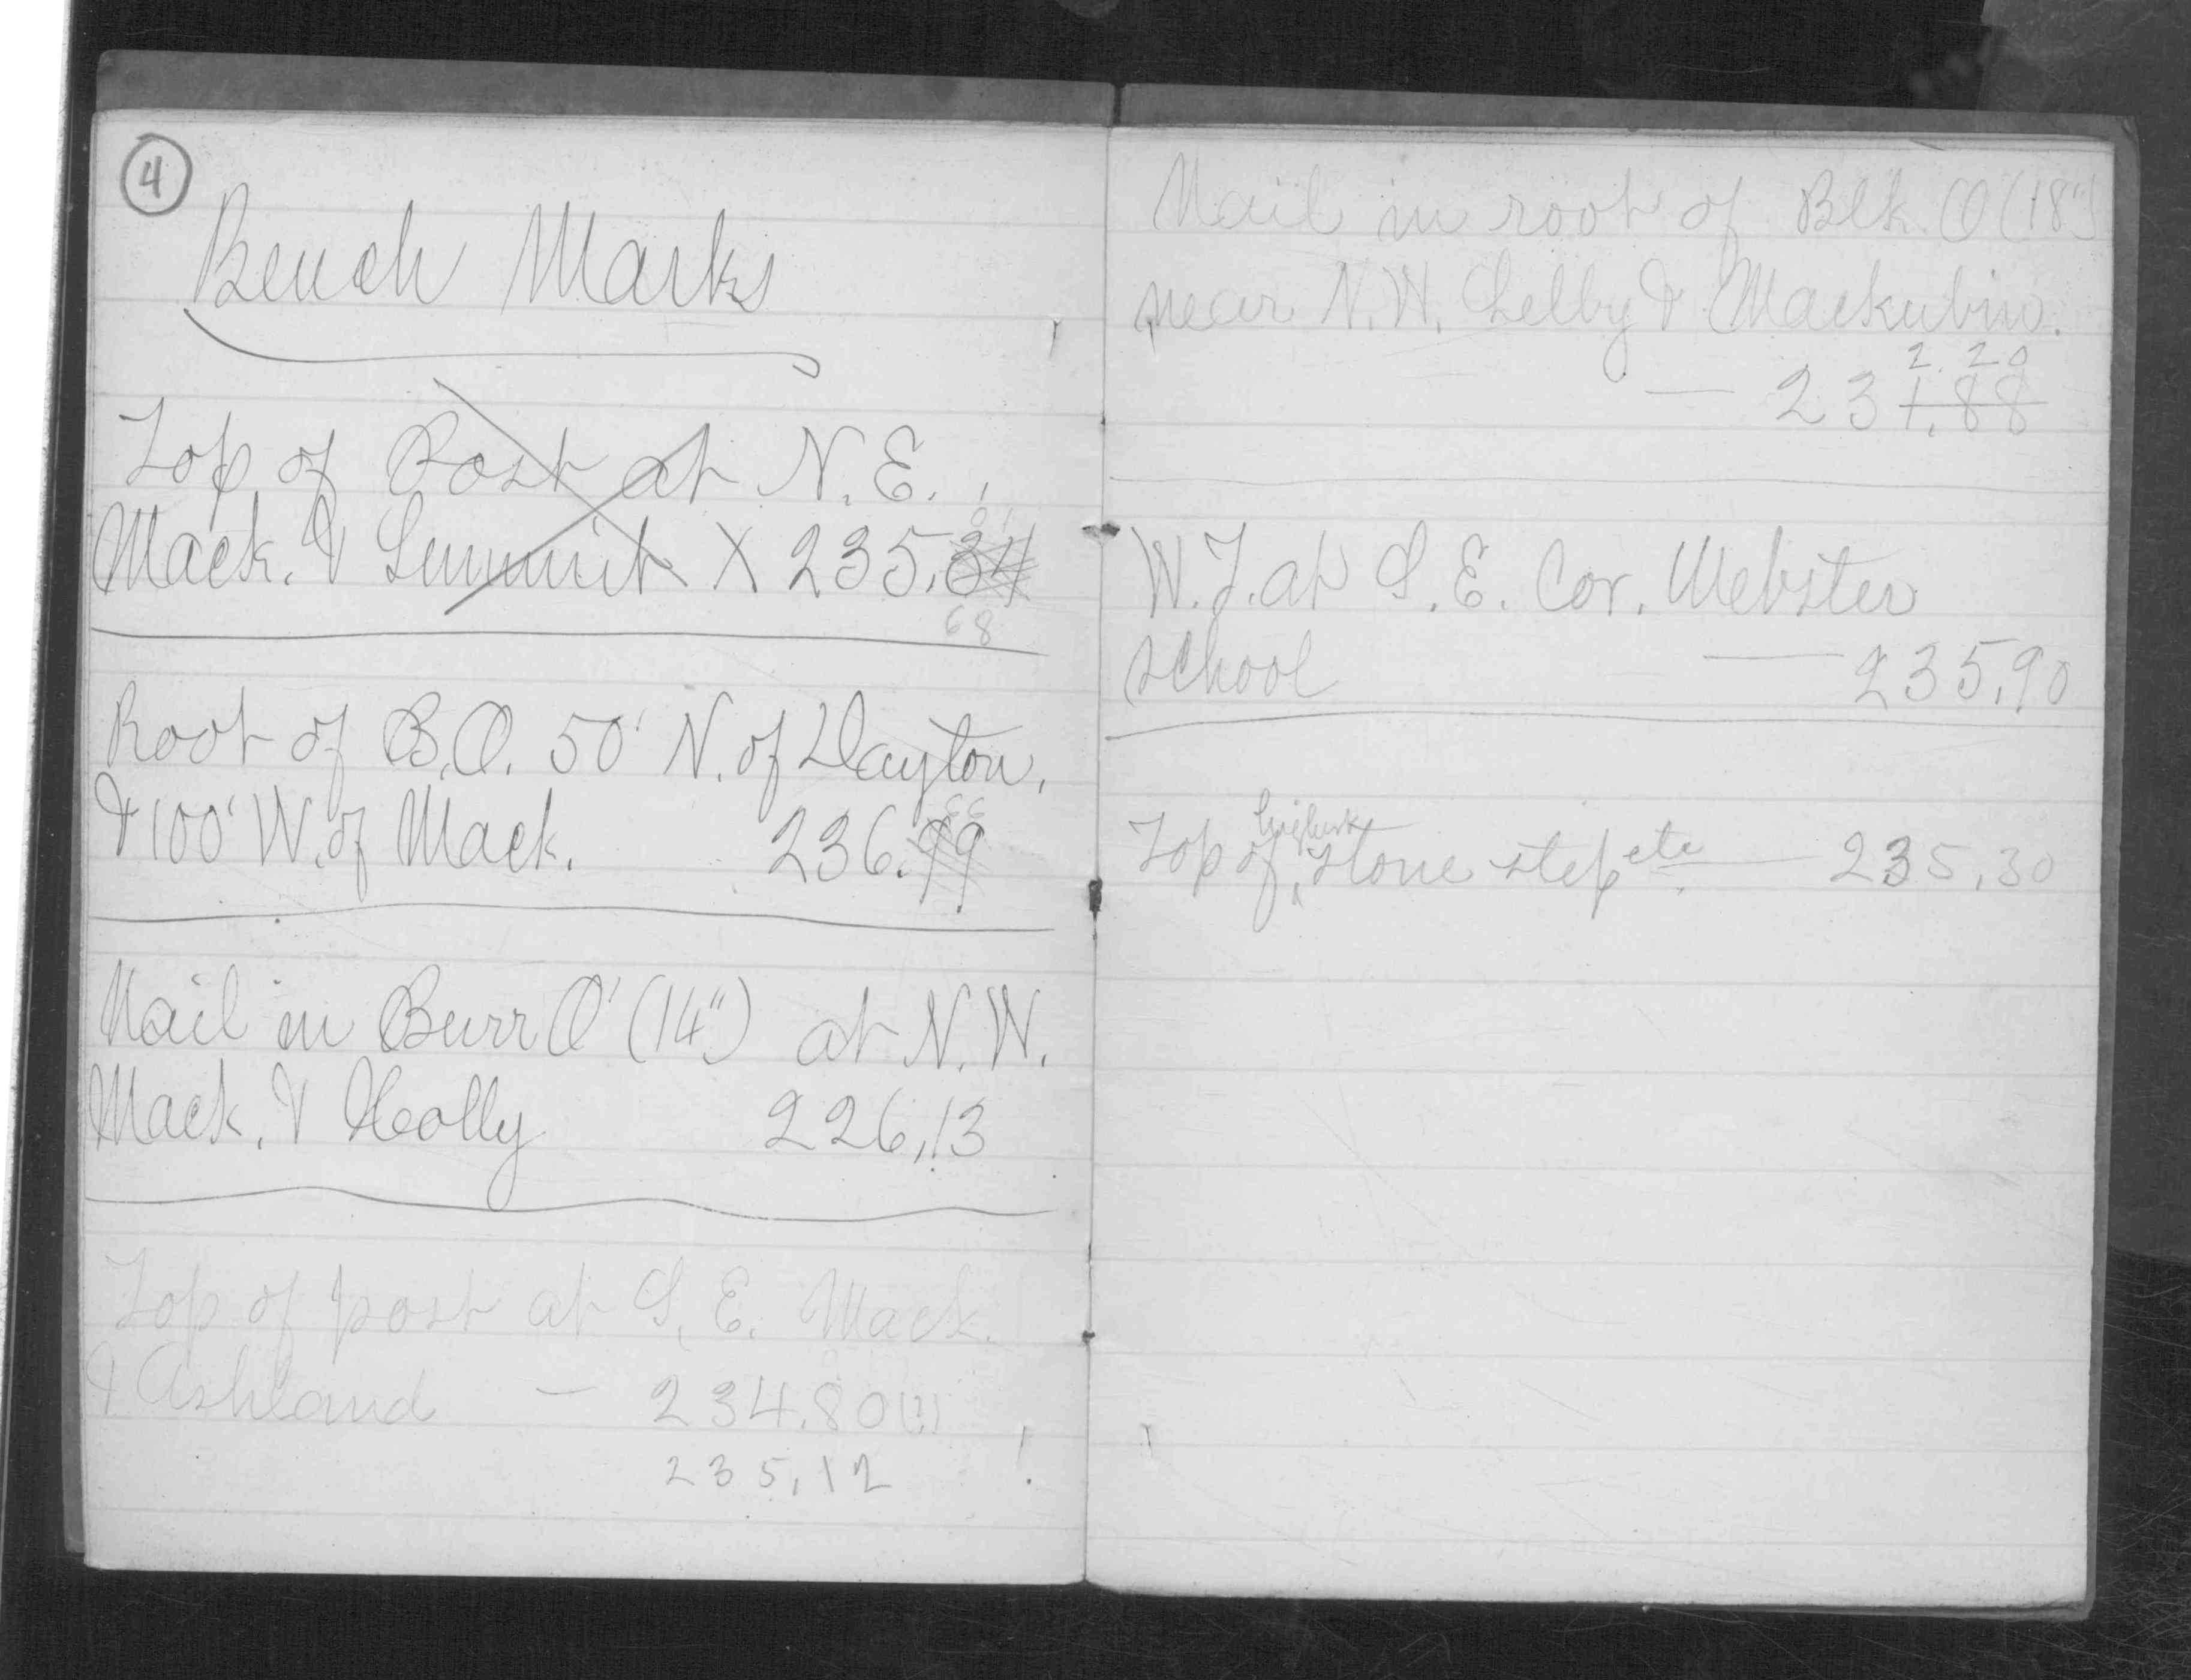 4
Bench Marks
Top of Post at N.E.
Mack. & Summit X 235.34
68
Root of B.O. 50' N. of Dayton,
66
& 100' W. of Mack. 236.99
Nail in Burr O' (14") at N.W.
Mack. & Holly 226.13
Top of post at S.E. Mack.
& Ashland — 234.80
235.12 !
Nail in root of Blk. O (18")
near N.W. Selby & Mackubin.
2.20
— 231.88
W.T. at S.E. Cor. Webster
school — 235.90
highest
Top of ‸ stone step etc — 235.30